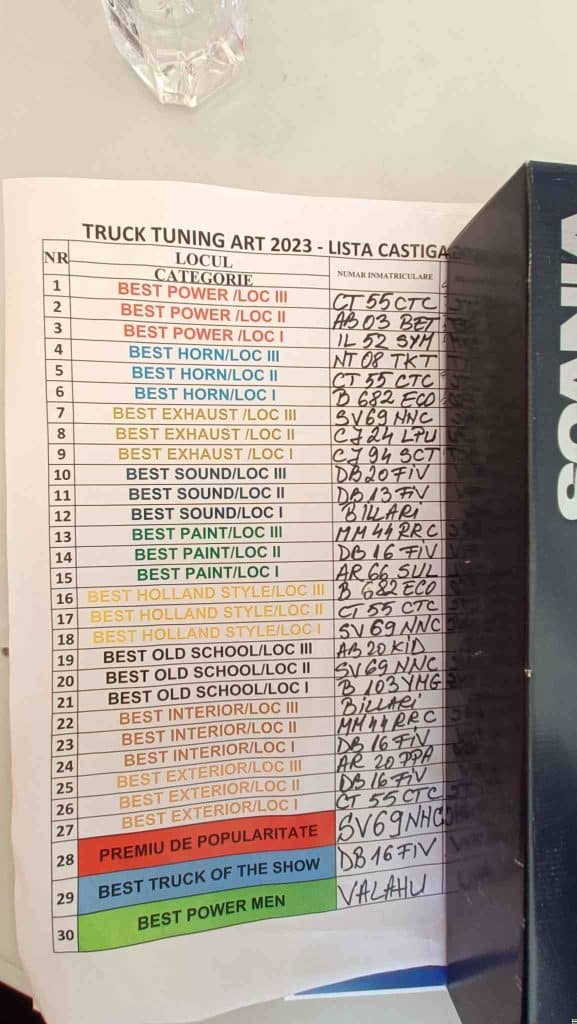 TRUCK TUNING ART 2023 - LISTA CASTIGA
NR LOCUL
CATEGORIE NUMAR INMATRICULARE
1 BEST POWER /LOC III CT 55 CTC
2 BEST POWER /LOC II AB 03 BET
3 BEST POWER /LOC I IL 52 SYM
4 BEST HORN/LOC III NT 08 TKT
5 BEST HORN/LOC II CT 55 CTC
6 BEST HORN/LOC I B 682 ECO
7 BEST EXHAUST /LOC III SV69 NNC
8 BEST EXHAUST /LOC II CJ 24 LPU
9 BEST EXHAUST /LOC I CJ 94 SCT
10 BEST SOUND/LOC III DB 20 FIV
11 BEST SOUND/LOC II DB 13 FIV
12 BEST SOUND/LOC I BILLARI
13 BEST PAINT/LOC III MM 44 RRC
14 BEST PAINT/LOC II DB 16 FIV
15 BEST PAINT/LOC I AR 66 SUL
16 BEST HOLLAND STYLE/LOC III B 682 ECO
17 BEST HOLLAND STYLE/LOC II CT 55 CTC
18 BEST HOLLAND STYLE/LOC I SV 69 NNC
19 BEST OLD SCHOOL/LOC III AB 20 KID
20 BEST OLD SCHOOL/LOC II SV69 NNC
21 BEST OLD SCHOOL/LOC I B 103 YMG
22 BEST INTERIOR/LOC III BILLARI
23 BEST INTERIOR/LOC II MM 44 RRC
24 BEST INTERIOR/LOC I DB 16 FIV
25 BEST EXTERIOR/LOC III AR 20 PPA
26 BEST EXTERIOR/LOC II DB 16 FIV
27 BEST EXTERIOR/LOC I CT 55 CTC
28 PREMIU DE POPULARITATE SV69NHC
29 BEST TRUCK OF THE SHOW DB 16 FIV
30 BEST POWER MEN VALAHU
SCANIA